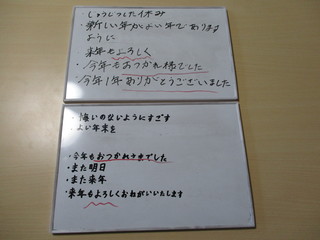 じゅうじつした休み
・新しい年がよい年でありますように
来年もよろしく
・今年もおつかれ様でした
・今年1年ありがとうございました
・悔いのないようにすごす
・よい年末を
・今年もおつかれさまでした
・また明日
・また来年
・来年もよろしくおねがいいたします